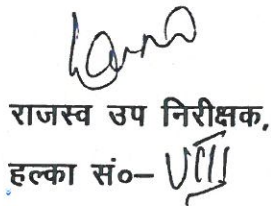 राजस्व उप निरीक्षक,
हल्का सं०– VIII